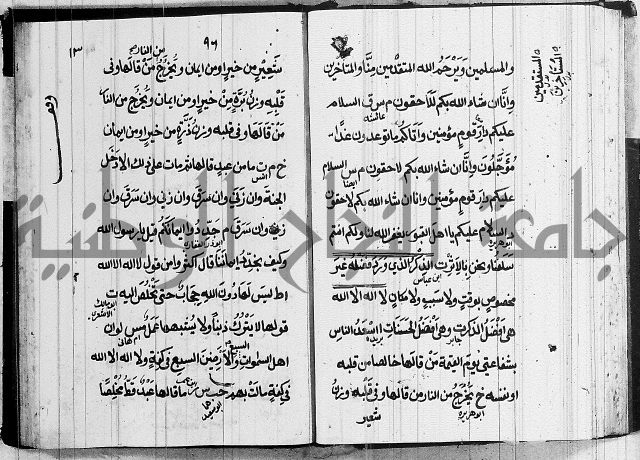 والمسلمين ويرحم الله المتقدمين منا والمتأخرين
وانا ان شاء الله بكم للاحقون م س ق السلام
عليكم دار قوم مؤمنين واتاكم ما توعدون غدا
مؤجلون وانا ان شاء الله بكم لاحقون م س السلام
عليكم دار قوم مؤمنين وانا ان شاء الله بكم لاحقون
د السلام عليكم يا اهل القبور يغفر الله لنا ولكم انتم
سلفنا ونحن بالاثر ت الذكر الذي ورد فضله غير
مخصوص بوقت ولا سبب ولا مكان لا اله الا الله
هي افضل الذكر ت وهي افضل الحسنات اسعد الناس
بشفاعتي يوم القيمة من قالها خالصا من قلبه
او نفسه خ يخرج من النار من قالها وفي قلبه وزن
شعير
المتقدمين
المستأخرين
عائشة
ابوهريرة
ابن عباس
جابر
بريدة
ابوهريرة
٩٦
١٣
من النار
شعيرة من خير او من ايمان ويخرج من قالها وفي
قلبه وزن برة من خير او من ايمان ويخرج من النار
من قالها وفي قلبه وزن ذرة من خير او من ايمان
خ م ت ما من عبد قالها ثم مات على ذلك الا دخل
الجنة وان زنى وان سرق وان زنى وان سرق وان
زنى وان سرق م جددوا ايمانكم قيل يا رسول الله
وكيف نجدد ايماننا قال اكثروا من قول لا اله الا الله
ا ط ليس لها دون الله حجاب حتى تخلص اليه ت
قولها لا يترك ذنبا ولا يشبهها عمل مس لو ان
اهل السموات والارضين السبع في كفة ولا اله الا الله
في كفة مالت بهم حب س ر ما قالها عبد قط مخلصا
انس
ابوذر الغفاري
ابو مالك الاشعري
ام هاني
السبع
ابوسعيد
وقف
جامعة النجاح الوطنية